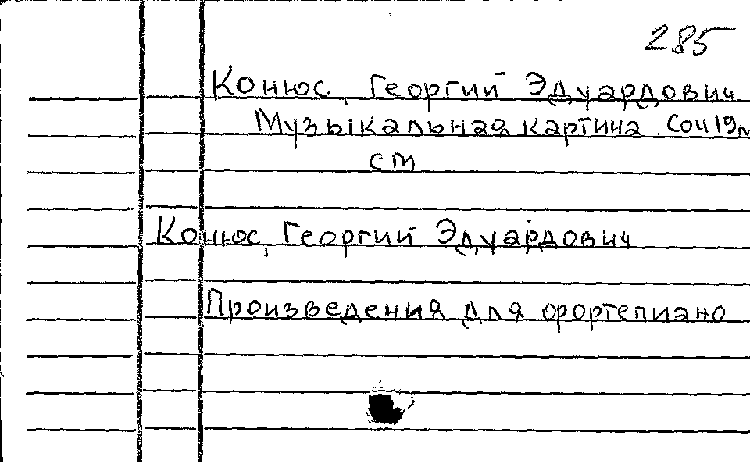 285
Конюс, Георгий Эдуардович
Музыкальная картина Соч 19
см
Конюс, Георгий Эдуардович
Произведения для фортепиано